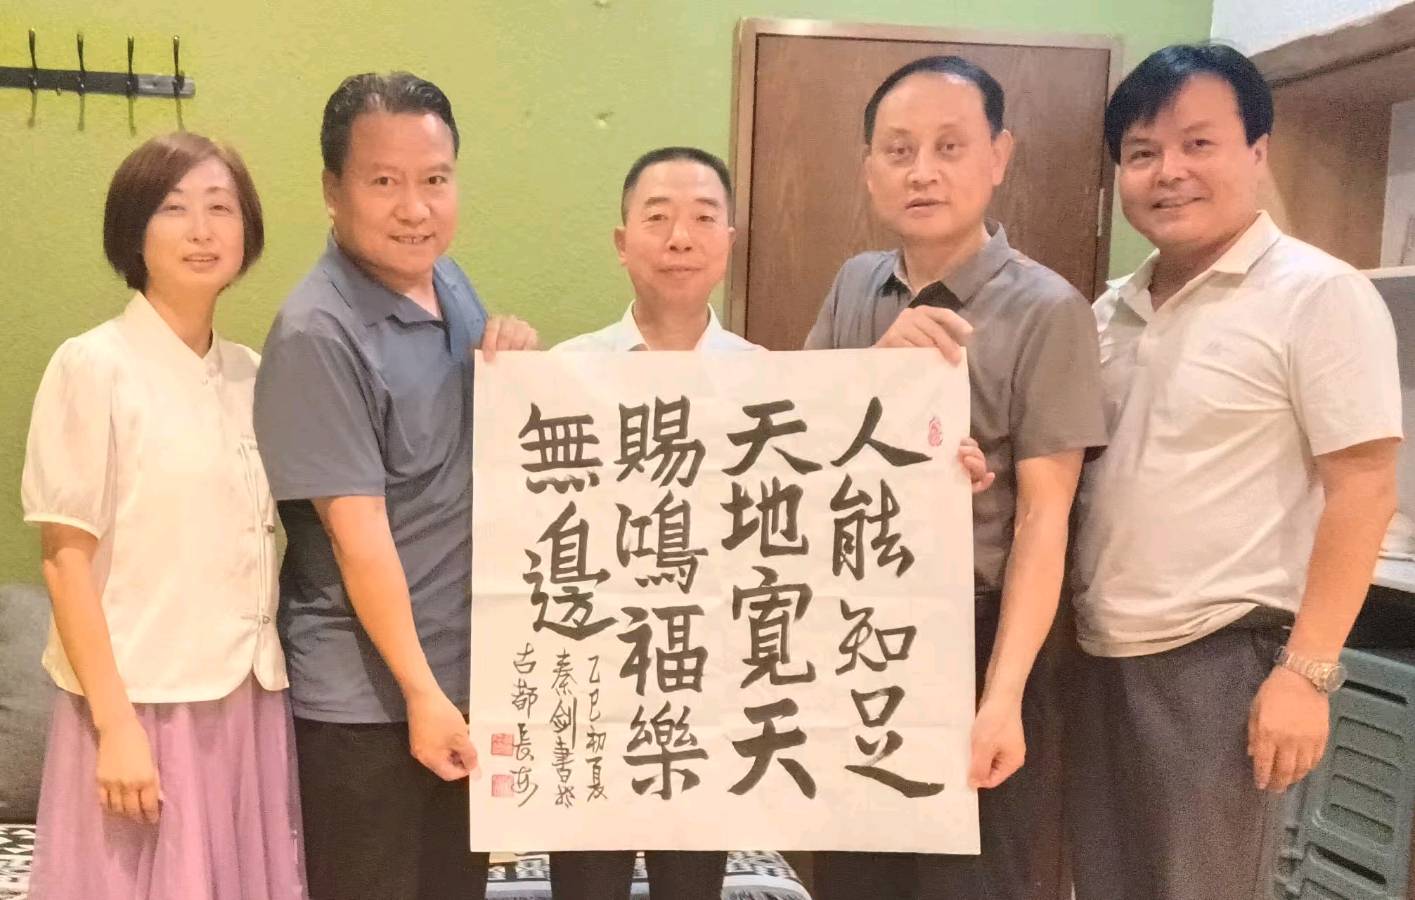 人能知足
天地寬天
賜鴻福樂
無邊
乙巳初夏
秦劍書於
古都長安